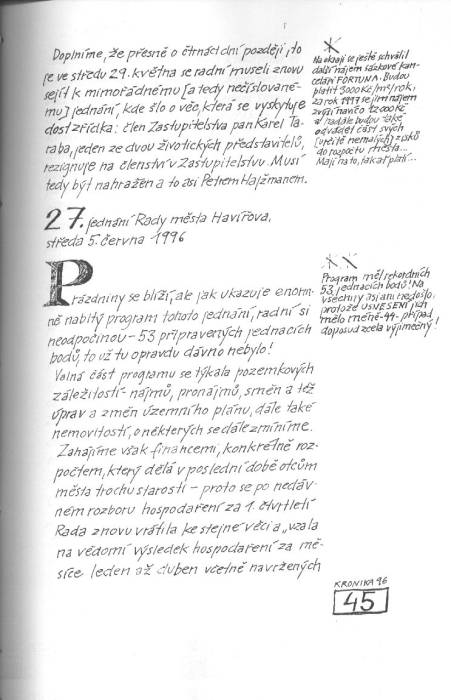 Doplníme, že přesně o čtrnáct dní později, to
je ve středu 29. května se radní museli znovu
sejít k mimořádnému [a tedy nečíslované-
mu] jednání, kde šlo o věc, která se vyskytuje
dost zřídka: člen Zastupitelstva pan Karel Ta-
raba, jeden ze dvou životických představitelů,
rezignuje na členství v Zastupitelstvu. Musí
tedy být nahražen a to asi Petrem Hajzmanem.
27. jednání Rady města Havířova,
středa 5. června 1996
Prázdniny se blíží, ale jak ukazuje enorm-
ně nabitý program tohoto jednání, radní si
neodpočinou - 53 připravených jednacích
bodů, to už tu opravdu dávno nebylo!
Volná část programu se týkala pozemkových
záležitostí - nájmů, pronájmů, směn a též
úprav a změn územního plánu, dále také
nemovitostí, o některých se dále zmíníme.
Zahajíme však financemi, konkrétně roz-
počtem, který dělá v poslední době otcům
města trochu starostí - proto se po nedáv-
ném rozboru hospodaření za 1. čtvrtletí
Rada znovu vrátila ke stejné věci a „vzala
na vědomí výsledek hospodaření za mě-
síce leden až duben včetně navržených
Na okraji se ještě schválil
další nájem sázkové kan-
celáři FORTUNA. Budou
platit 3000 Kč/m²/rok,
za rok 1997 se jim nájem
zvýší navíc o 12000 Kč
a nadále budou také
odvádět část svých
[určitě nemalých] zisků
do rozpočtu města...
Mají na to, tak ať platí...
Program měl rekordních
53 jednacích bodů! Na
všechny asi ani nedošlo,
protože USNESENÍ jich
mělo méně - 44 - případ
doposud zcela výjimečný!
KRONIKA 96
45